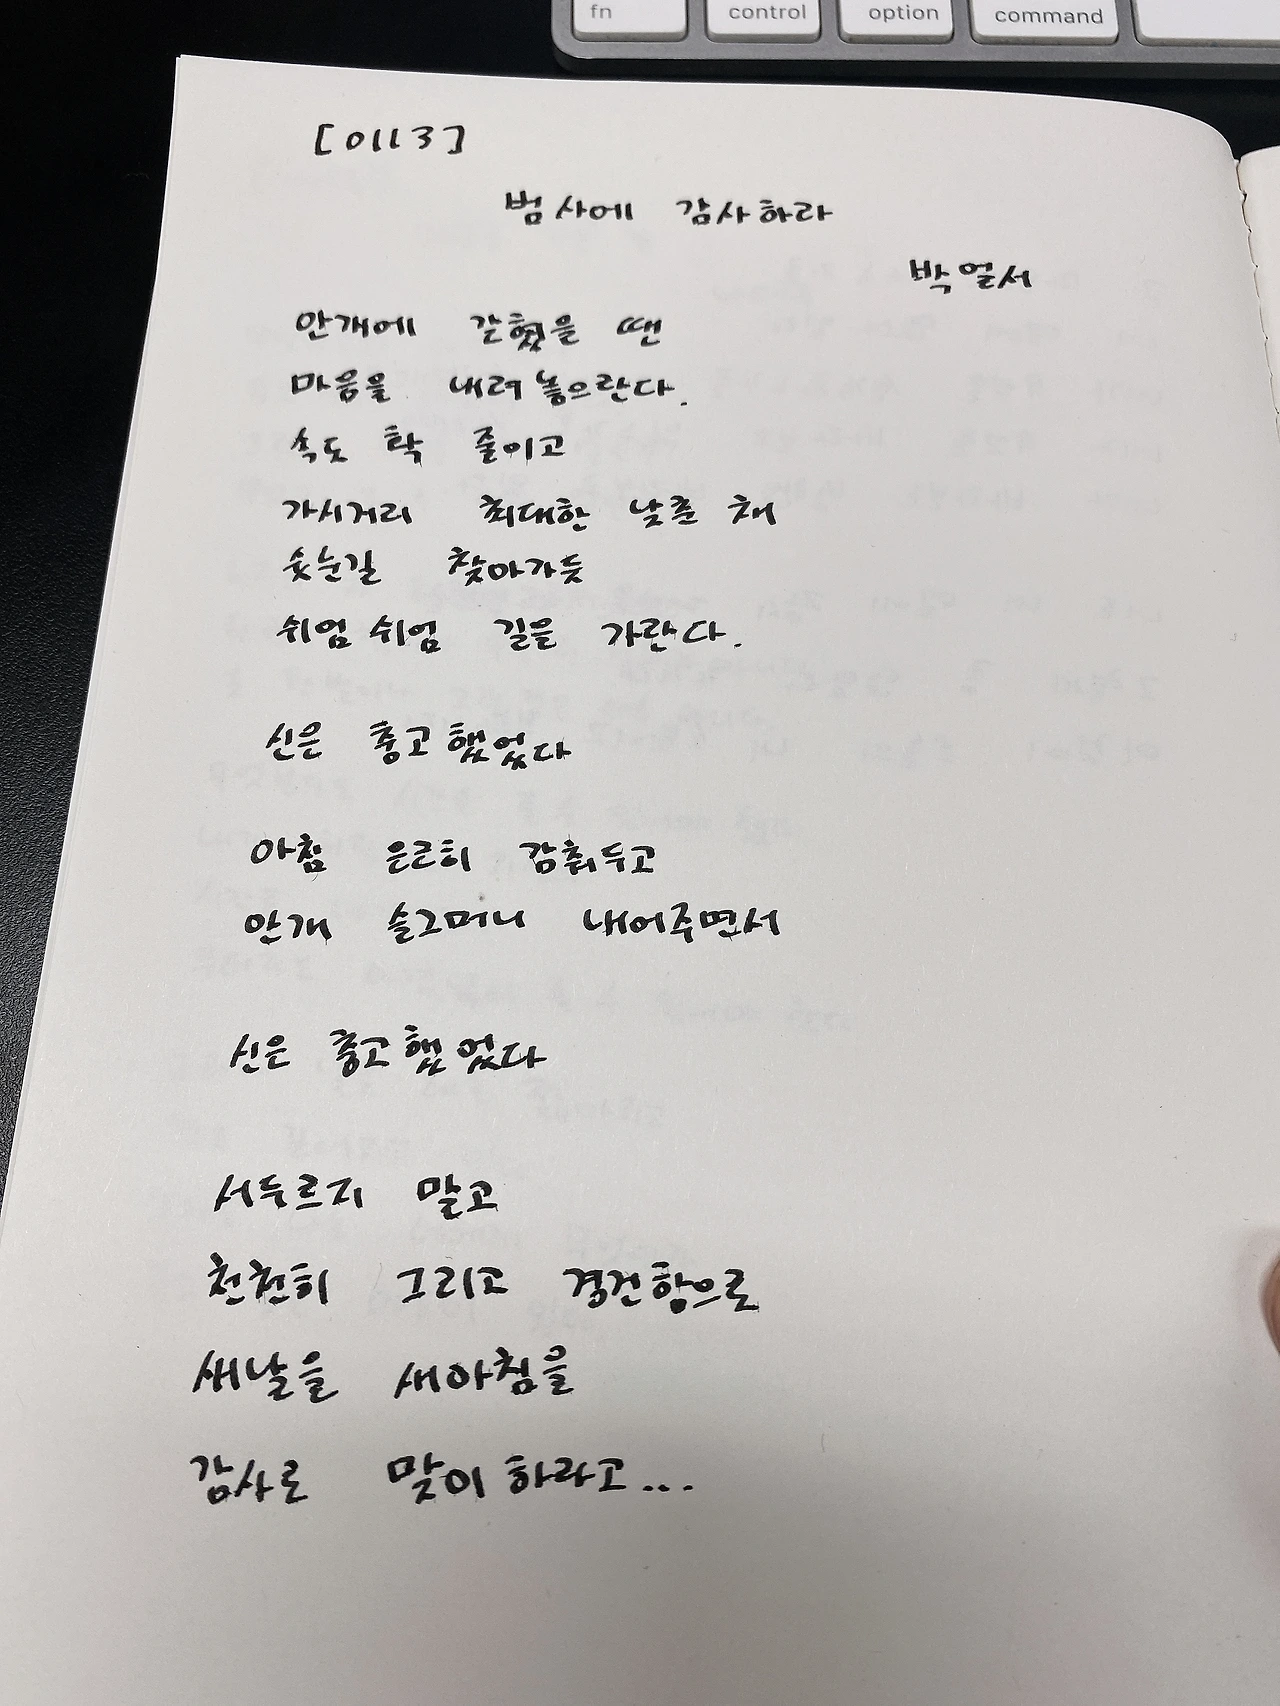 fn control option command
[0113]
범사에 감사하라
박얼서
안개에 갇혔을 땐
마음을 내려놓으란다.
속도 확 줄이고
가시거리 최대한 낮춘 채
숫눈길 찾아가듯
쉬엄쉬엄 길을 가란다.
신은 충고했었다
아침 은근히 감춰두고
안개 슬그머니 내어주면서
신은 충고했었다
서두르지 말고
천천히 그리고 경건함으로
새날을 새아침을
감사로 맞이하라고...